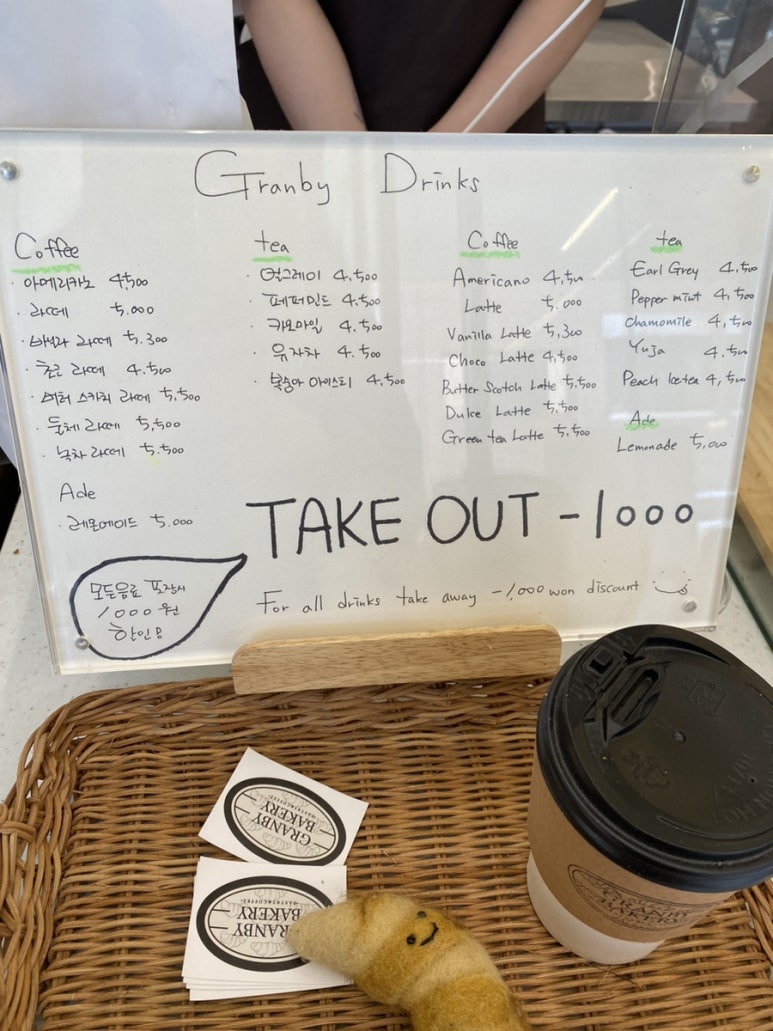 Granby Drinks
Coffee
· 아메리카노 4,500
· 라떼 5.000
· 바닐라 라떼 5.300
· 초코 라떼 4.500
· 버터 스카치 라떼 5,500
· 둘체 라떼 5,500
· 녹차 라떼 5.500
Ade
· 레몬에이드 5.000
모든음료 포장시
1000원
할인용
tea
· 얼그레이 4.500
· 페퍼민트 4.500
· 카모마일 4.500
· 유자차 4.500
· 복숭아 아이스티 4,500
Coffee
Americano 4,500
Latte 5,000
Vanilla Latte 5,300
Choco Latte 4,500
Butter Scotch Latte 5,500
Dulce Latte 5,500
Green tea Latte 5,500
tea
Earl Grey 4,500
Pepper mint 4,500
Chamomile 4,500
Yuja 4,500
Peach Icetea 4,500
Ade
Lemonade 5,000
TAKE OUT -1000
For all drinks take away -1,000 won discount
GRANBY
BAKERY
GRANBY
BAKERY
GRANBY
BAKERY